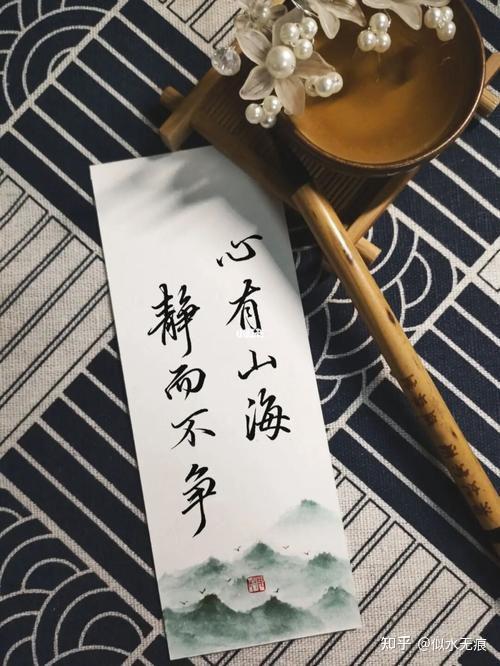 心有山海
静而不争
知乎 @似水无痕